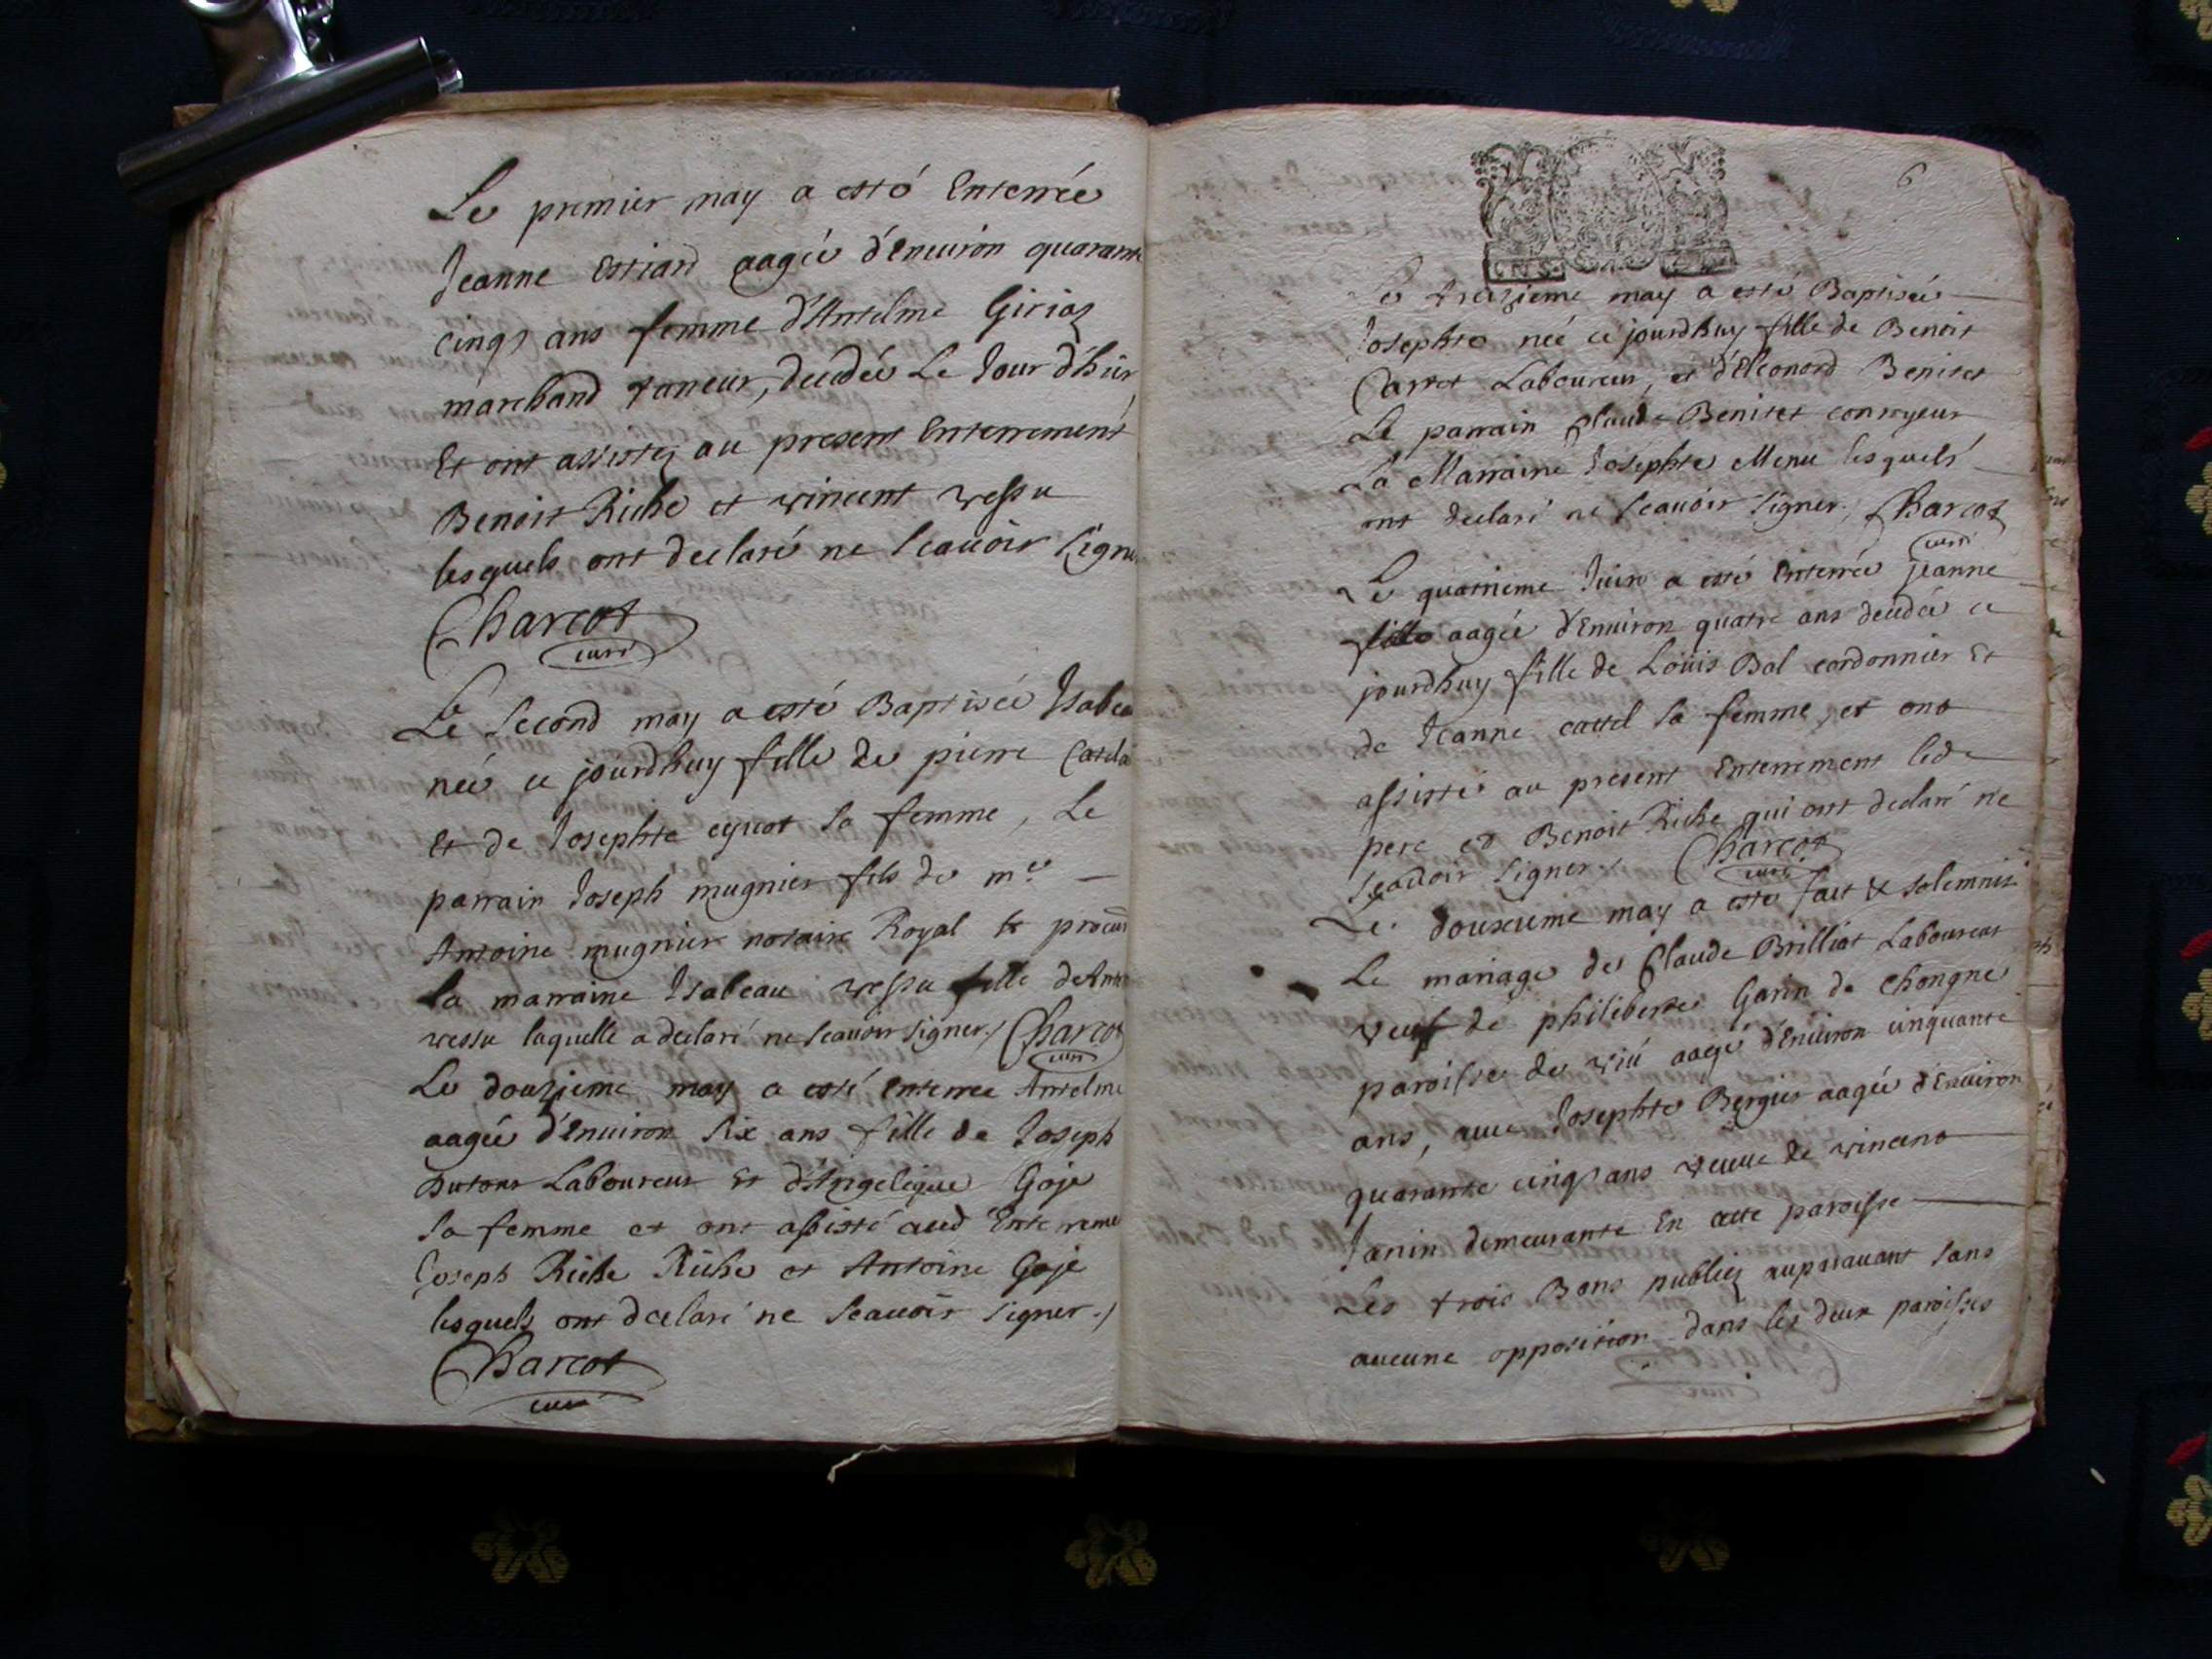 Le premier may a esté Enterrée
Jeanne Estiard aagée d'Enuiron quarante
cinq ans femme d'Antelme Giriaz
marchand taneur, decedée Le Jour d'hier,
Et ont assistez au present Enterrement
Benoit Riche et vincent vessu
lesquels ont declaré ne scauoir signer
Charcot
curé
Le second may a esté Baptisée Isabeau
née ce jourdhuy fille de pierre
Et de Josephte cyuot sa femme, Le
parrain Joseph mugnier fils de me
Antoine mugnier notaire Royal &
La marraine Isabeau vessu fille de
vessu laquelle a declaré ne scauoir signer./ Charcot
curé
Le douzieme may a esté enterree Antelme
aagée d'Enuiron six ans fille de Joseph
Dutour Laboureur Et d'Angelique Goje
sa femme et ont assisté aud Enterrement
Joseph Riche Riche et Antoine Goje
lesquels ont declaré ne scauoir signer./
Charcot
curé
6
Le treizieme may a esté Baptisée
Josephte née ce jourdhuy fille de Benoit
Carret Laboureur, et d'Eleonord Benitet
Le parrain Claude Benitet conroyeur
La Marraine Josephte Menu lesquels
ont declaré ne scauoir signer./ Charcot
curé
Le quatrieme Juin a esté Enterrée Jeanne
fille aagée d'Enuiron quatre ans decedée ce
jourdhuy fille de Loüis Bal cordonnier Et
de Jeanne cattel sa femme, et ont
assisté au present Enterrement led
pere et Benoit Riche qui ont declaré ne
scauoir signer./ Charcot
curé
Le douxieme may a esté fait & solemnisé
Le mariage de Claude Brilliat Laboureur
veuf de philiberte Garin de Chongne
paroisse de viü aagé d'Enuiron cinquante
ans, auec Josephte Bergier aagée d'Enuiron
quarante cinq ans veuue de vincent
Janin demeurante En cette paroisse
Les trois Bans publiez auparauant sans
aucune opposition dans les deux paroisses